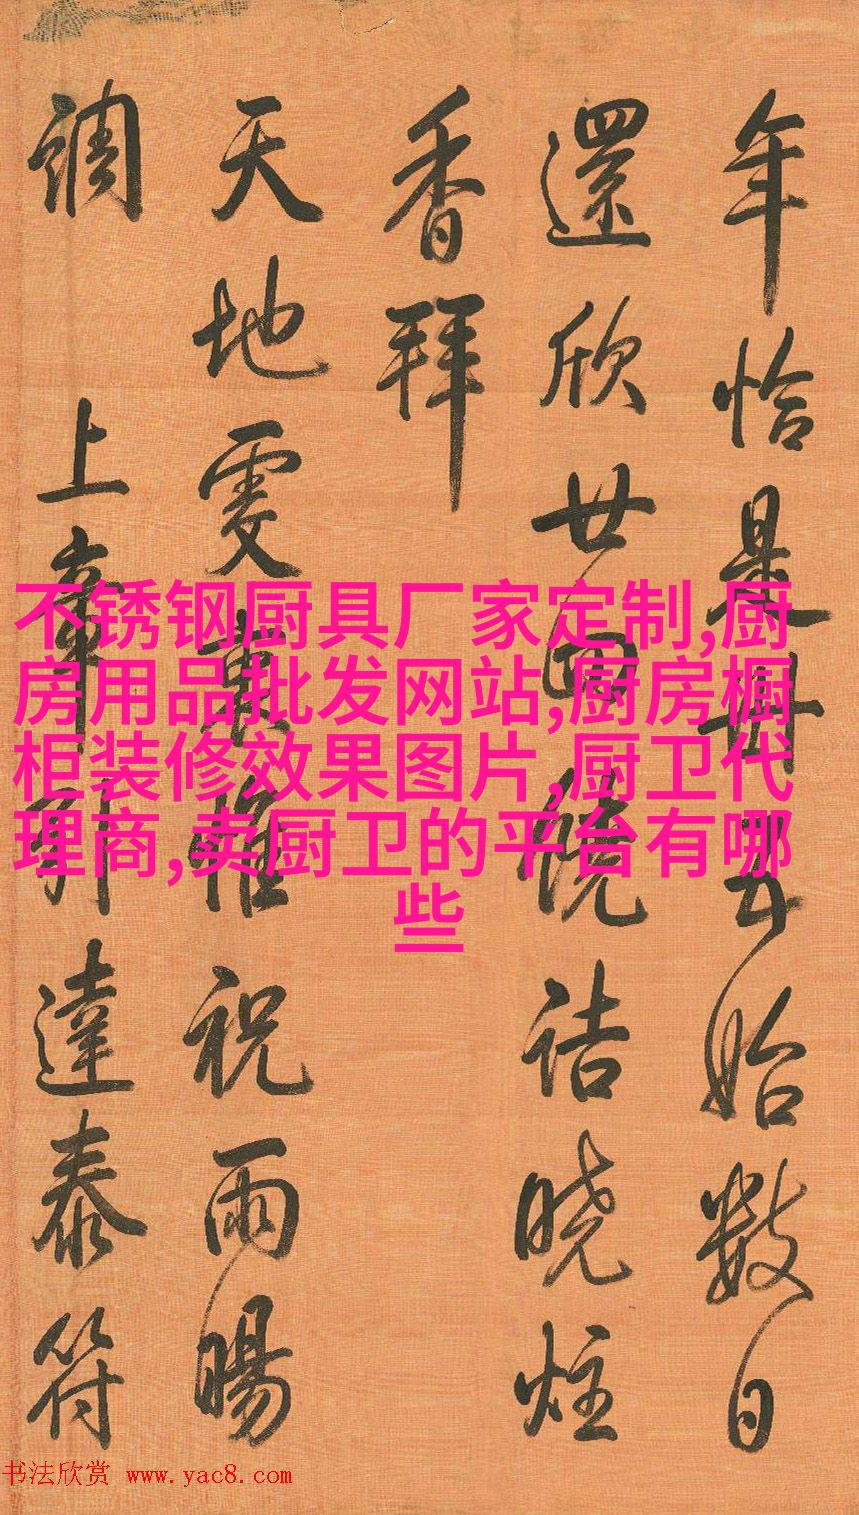 年恰是卅五始數日
還欣廿四詰曉炷
香拜
天地虔衷惟祝雨暘
調 上辛引達泰符
不锈钢厨具厂家定制,厨
房用品批发网站,厨房橱
柜装修效果图片,厨卫代
理商,卖厨卫的平台有哪
些
书法欣赏 www.yac8.com